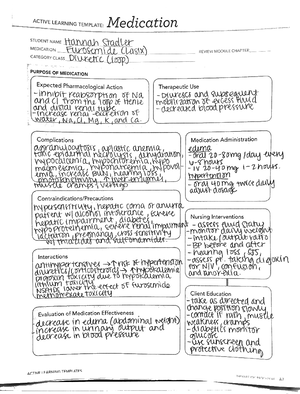 ACTIVE LEARNING TEMPLATE: Medication
STUDENT NAME Hannah Stadler
MEDICATION Furosemide (Lasix) REVIEW MODULE CHAPTER
CATEGORY CLASS Diuretic (loop)
PURPOSE OF MEDICATION
Expected Pharmacological Action
- inhibit reabsorption of Na
and Cl from the loop of Henle
and distal renal tube
- increase renal excretion of
water, Na, Cl, Mg, K, and Ca
Therapeutic Use
- Diuresis and subsequent
mobilization of excess fluid
- decreased blood pressure
Complications
agranulocytosis, aplastic anemia,
toxic epidermal necrolysis, dehydration,
hypocalcemia, hypochloremia, hypo
hearing loss,
muscle cramps, vertigo
Medication Administration
edema
- oral 20-80mg/day every
6-8 hours
- IV 20-40mg 1-2 hours
hypertension
- oral 40mg twice daily
adjust dosage
Contraindications/Precautions
hypersensitivity, hepatic coma or anuria
patient w/ alcohol intolerance, severe
hepatic impairment, diabetes,
hypoproteinemia, severe renal impairment
lactation, pregnancy, cross sensitivity
w/ thiazides and sulfonamides
Nursing Interventions
- assess fluid status
- monitor daily weight
- intake/output ratio
- BP before and after
- hearing loss, SJS,
- assess pt. taking digoxin
for N/V, confusion,
and anorexia
Interactions
antihypertensives → risk of hypotension
diuretics/corticosteroids → hypokalemia
digoxin toxicity due to hypokalemia
lithium toxicity
NSAIDs lower the effect of furosemide
methotrexate toxicity
Client Education
- take as directed and
change position slowly
- contact if rash, muscle
weakness, cramps
- diabetics monitor
glucose
- use sunscreen and
protective clothing
Evaluation of Medication Effectiveness
- decrease in edema (abdominal weight)
- increase in urinary output and
decrease in blood pressure
ACTIVE LEARNING TEMPLATES